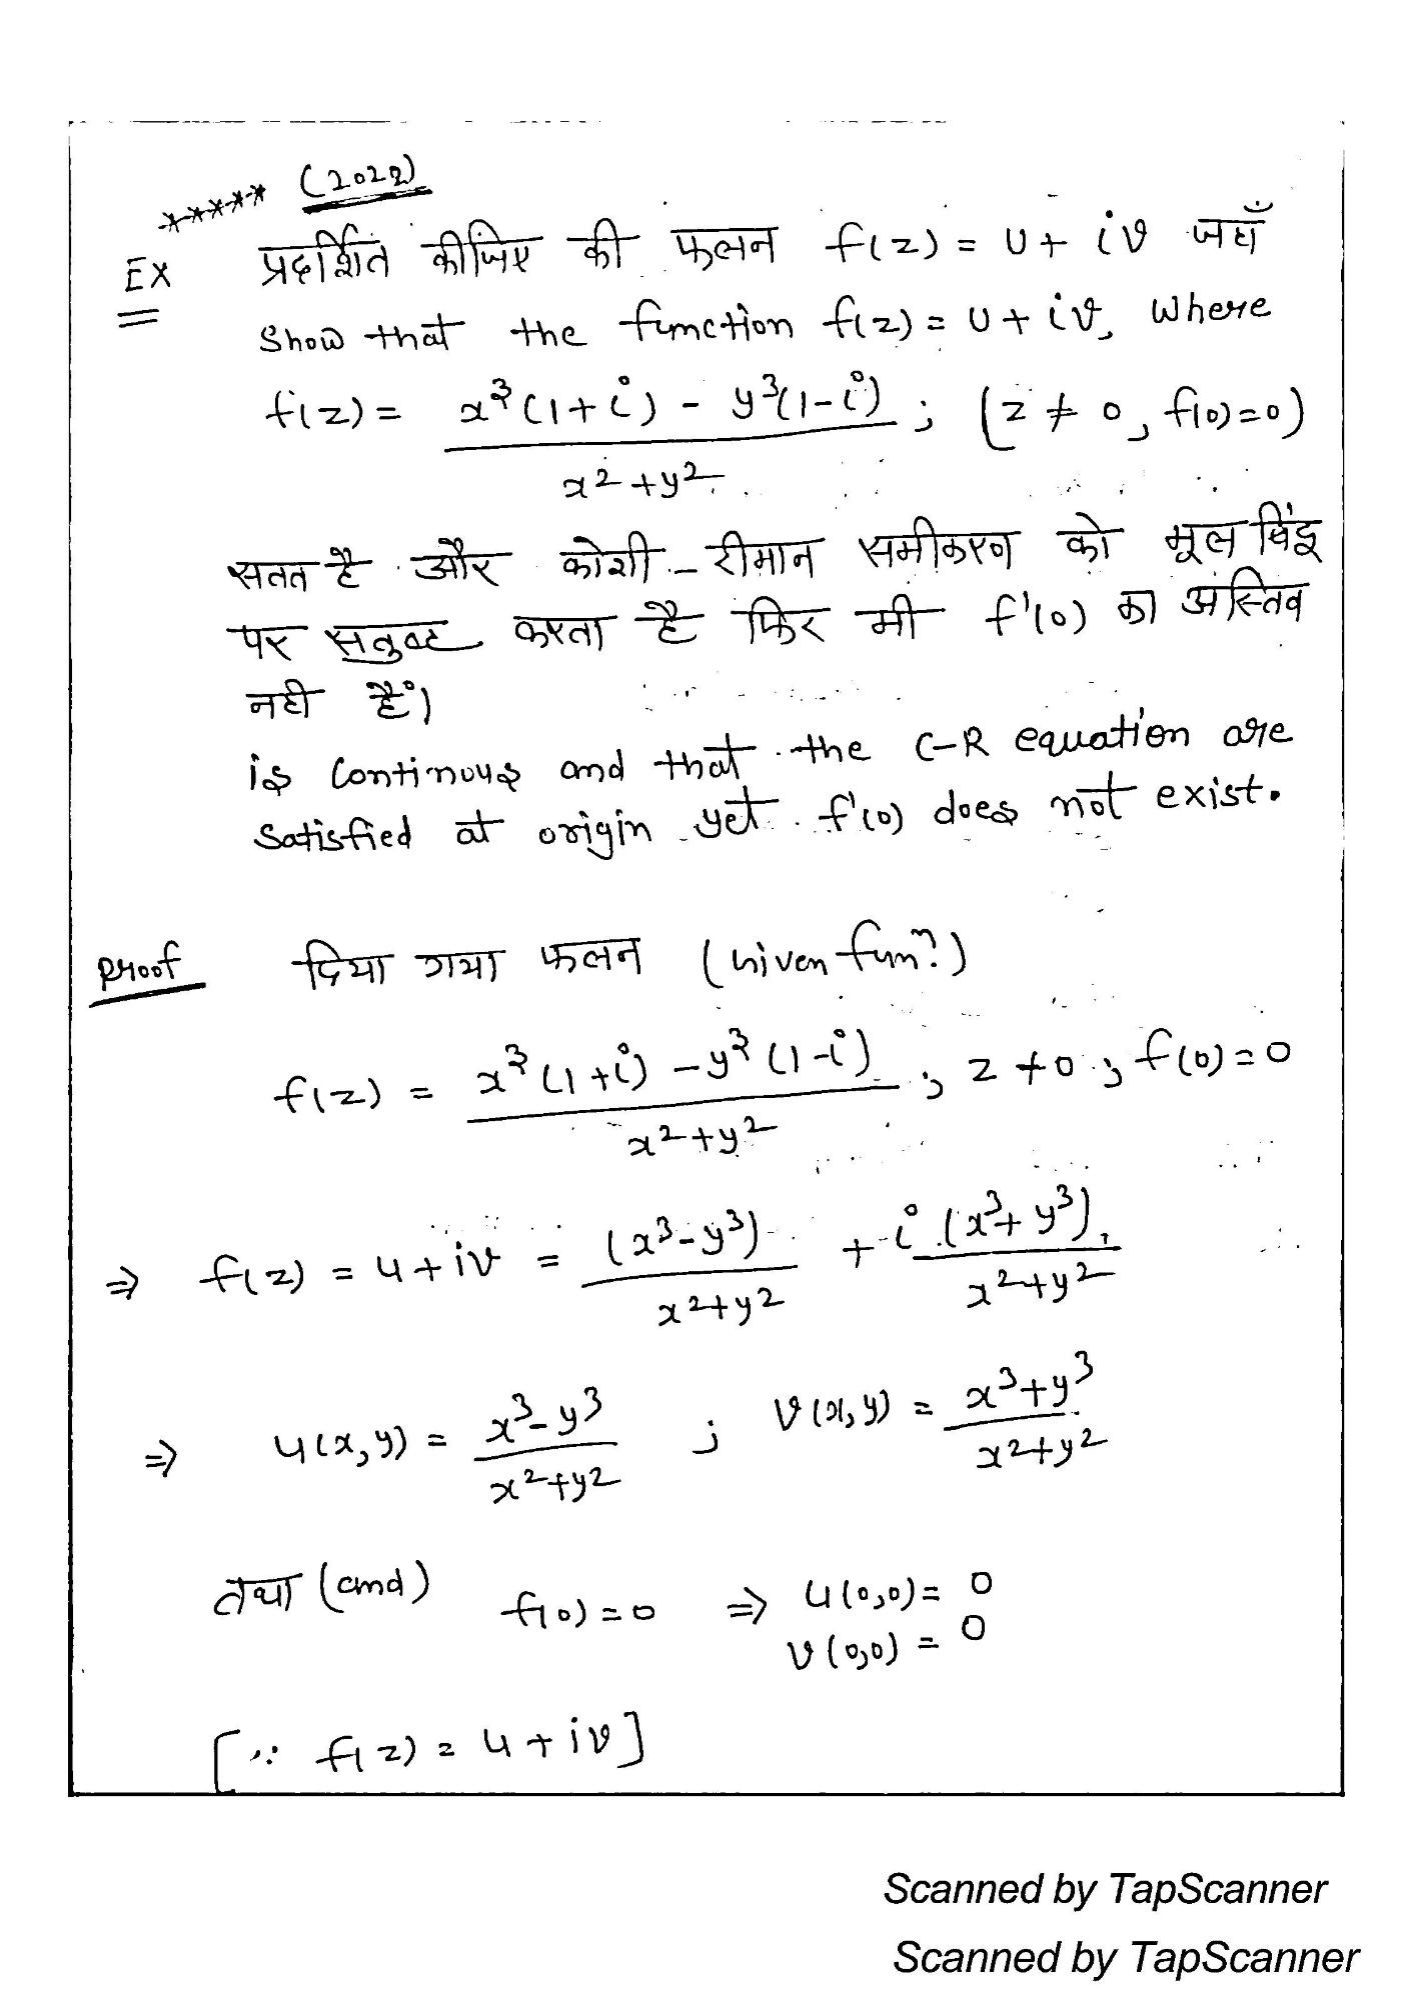 ***** (2022)
EX प्रदर्शित कीजिए की फलन f(z) = U + iv जहाँ
Show that the function f(z) = U + iv, where
f(z) = x³(1+i) - y³(1-i) / x²+y² ; (z ≠ 0, f(0)=0)
सतत है और कोशी - रीमान समीकरण को मूल बिंदु
पर सतुष्ट करता है फिर भी f'(0) का अस्तिव
नही हैं।
is Continous and that the C-R equation are
Satisfied at origin yet f'(0) does not exist.
Proof दिया गया फलन (Given fun?)
f(z) = x³(1+i) - y³(1-i) / x²+y² ; z ≠ 0 ; f(0) = 0
⇒ f(z) = u + iv = (x³-y³) / x²+y² + i (x³+y³) / x²+y²
⇒ u(x,y) = x³-y³ / x²+y² ; v(x,y) = x³+y³ / x²+y²
तथा (and) f(0) = 0 ⇒ u(0,0) = 0
v(0,0) = 0
[∵ f(z) = u + iv]
Scanned by TapScanner
Scanned by TapScanner